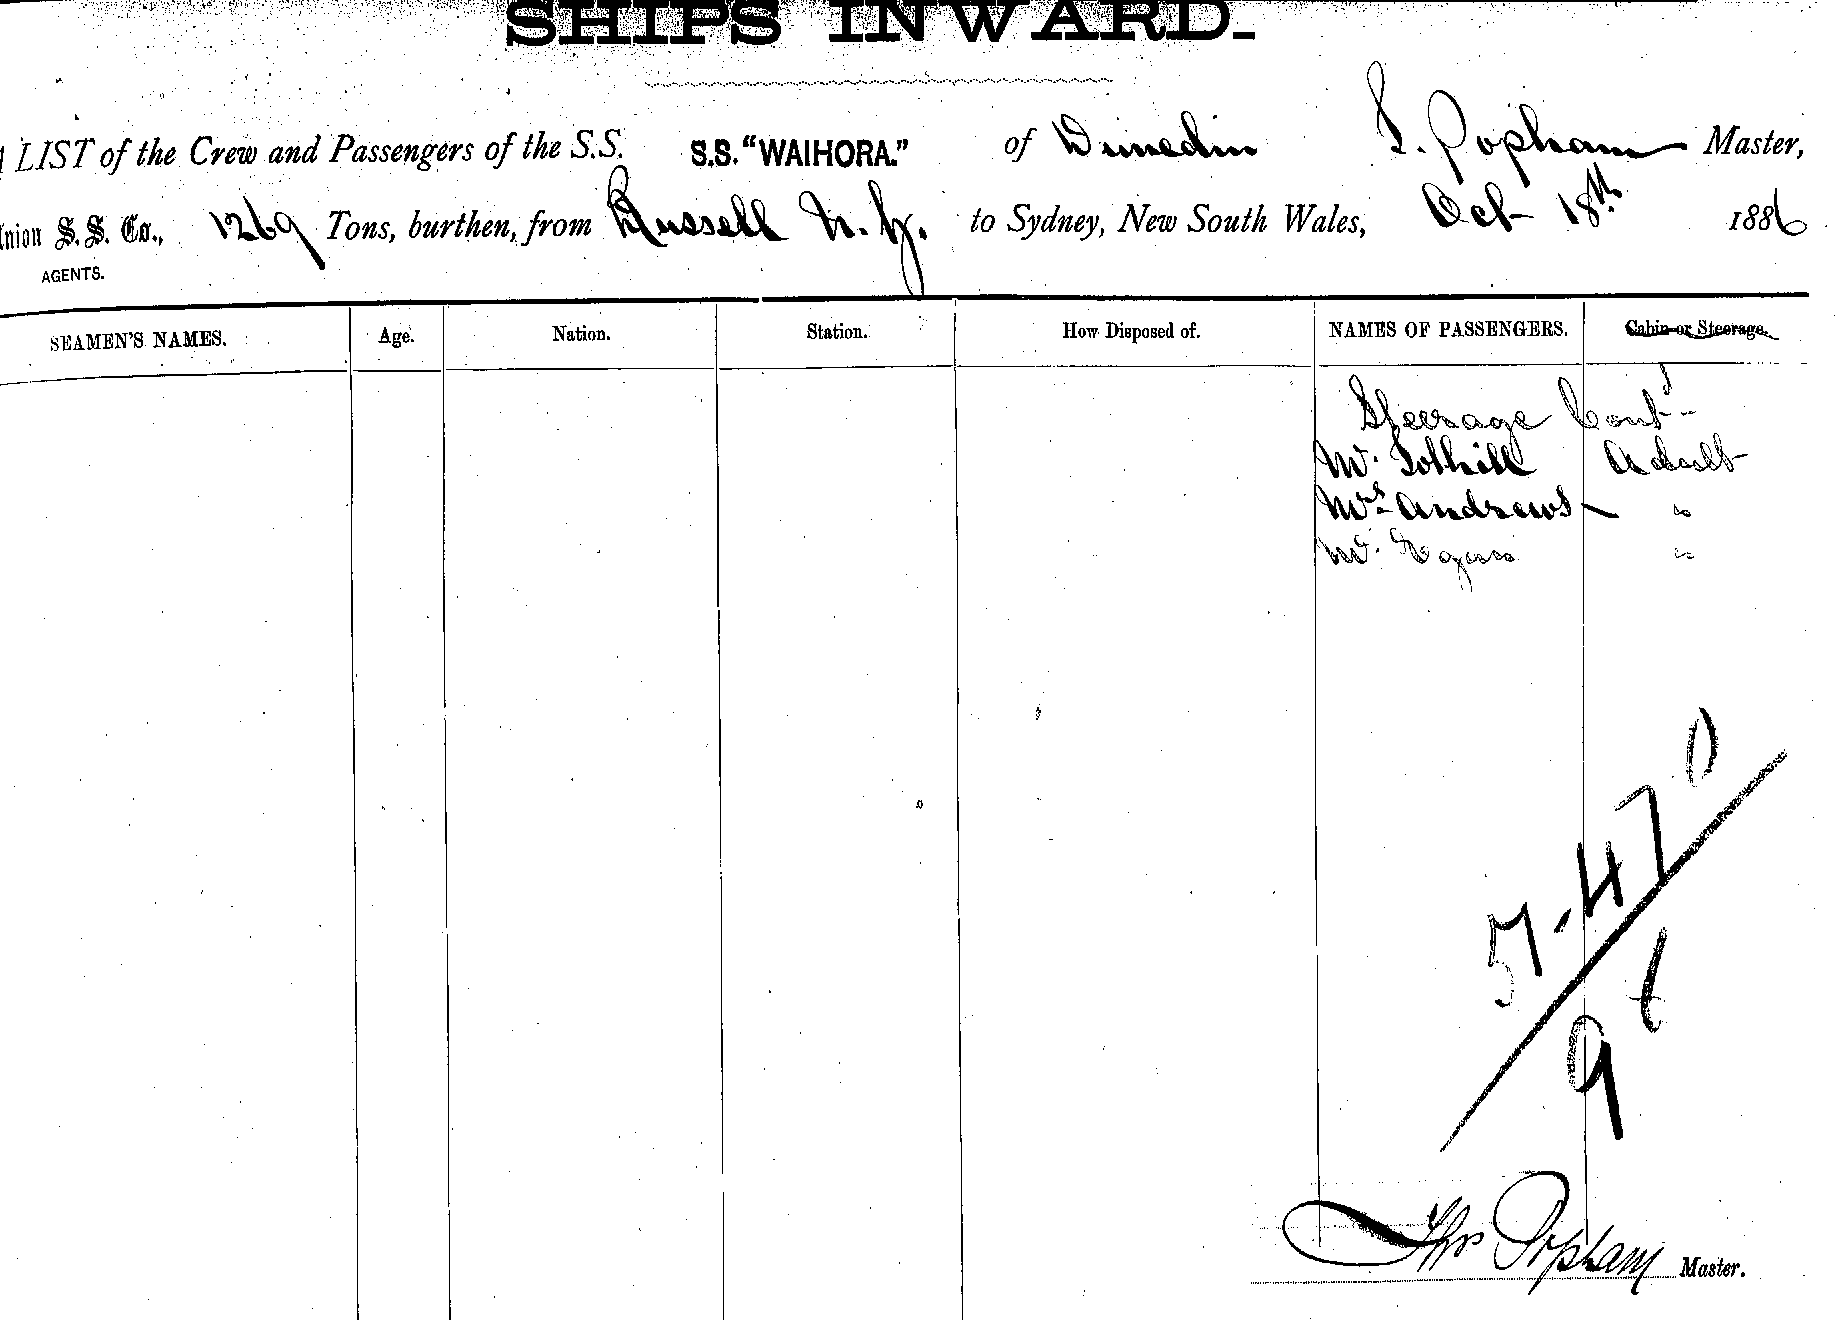 SHIPS INWARD.
A LIST of the Crew and Passengers of the S.S. S.S. "WAIHORA." of Dunedin T. Popham Master,
Union S. S. Co., 1269 Tons, burthen, from Russell N. Z. to Sydney, New South Wales, Oct 18th 1886
AGENTS.
SEAMEN'S NAMES. Age. Nation. Station. How Disposed of. NAMES OF PASSENGERS. Cabin or Steerage.
Steerage Contd
Mr. Tothill Adult
Mrs Andrews "
Mr. "
57.47
9
Thos Popham Master.